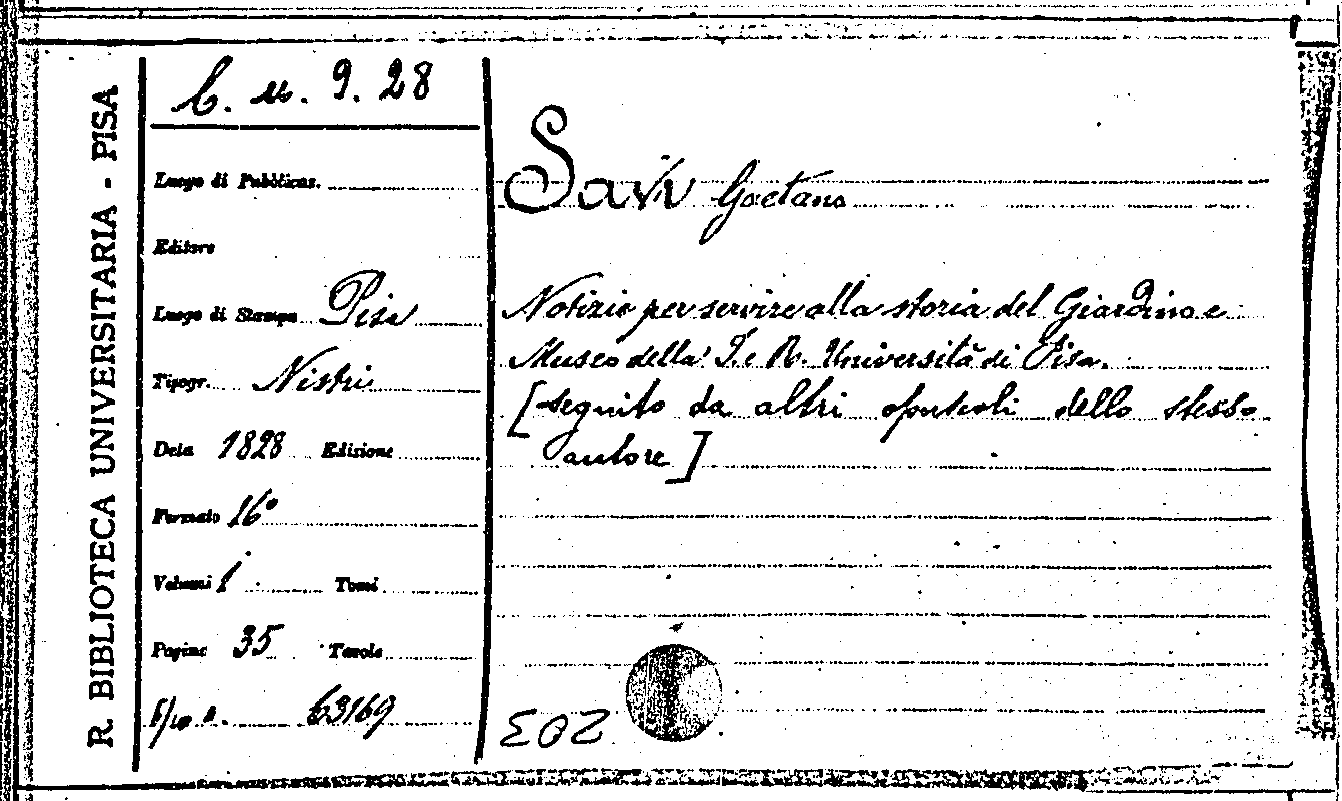 R. BIBLIOTECA UNIVERSITARIA - PISA
C. u. 9. 28
Luogo di Pubblicaz.
Editore
Luogo di Stampa Pisa
Tipogr. Nistri
Data 1828 Edizione
Formato 16º
Volumi 1 Tomi
Pagine 35 Tavole
63169
Savi Gaetano
Notizie per servire alla storia del Giardino e
Museo della I. e R. Università di Pisa.
[seguito da altri opuscoli dello stesso
autore]